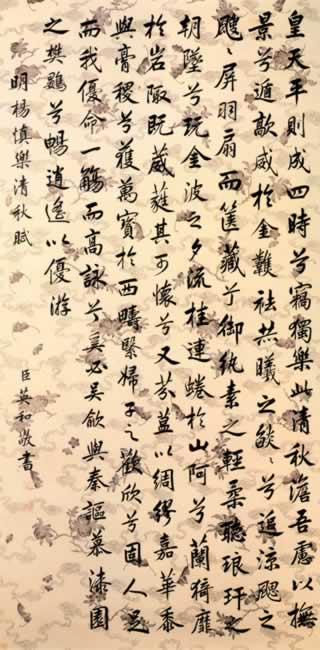 皇天平則成四時兮竊獨樂此清秋澹吾慮以撫
景兮遁歊威於金祛曦之燄〻兮追涼颸之
颼〻屏羽扇而篋藏兮御紈素之輕柔聽琅玕之
朝墜兮玩金波之夕流桂連蜷於山阿兮蘭猗靡
於岩陬既葳蕤其可懷兮又芬葐以綢繆嘉華黍
與膏稷兮穫萬寶於西疇繄婦子之歡欣兮固人足
而我優命一觴而高詠兮奚必吳歈與秦謳慕漆園
之樊鷃兮暢逍遙以優游
明楊慎樂清秋賦
臣英和敬書